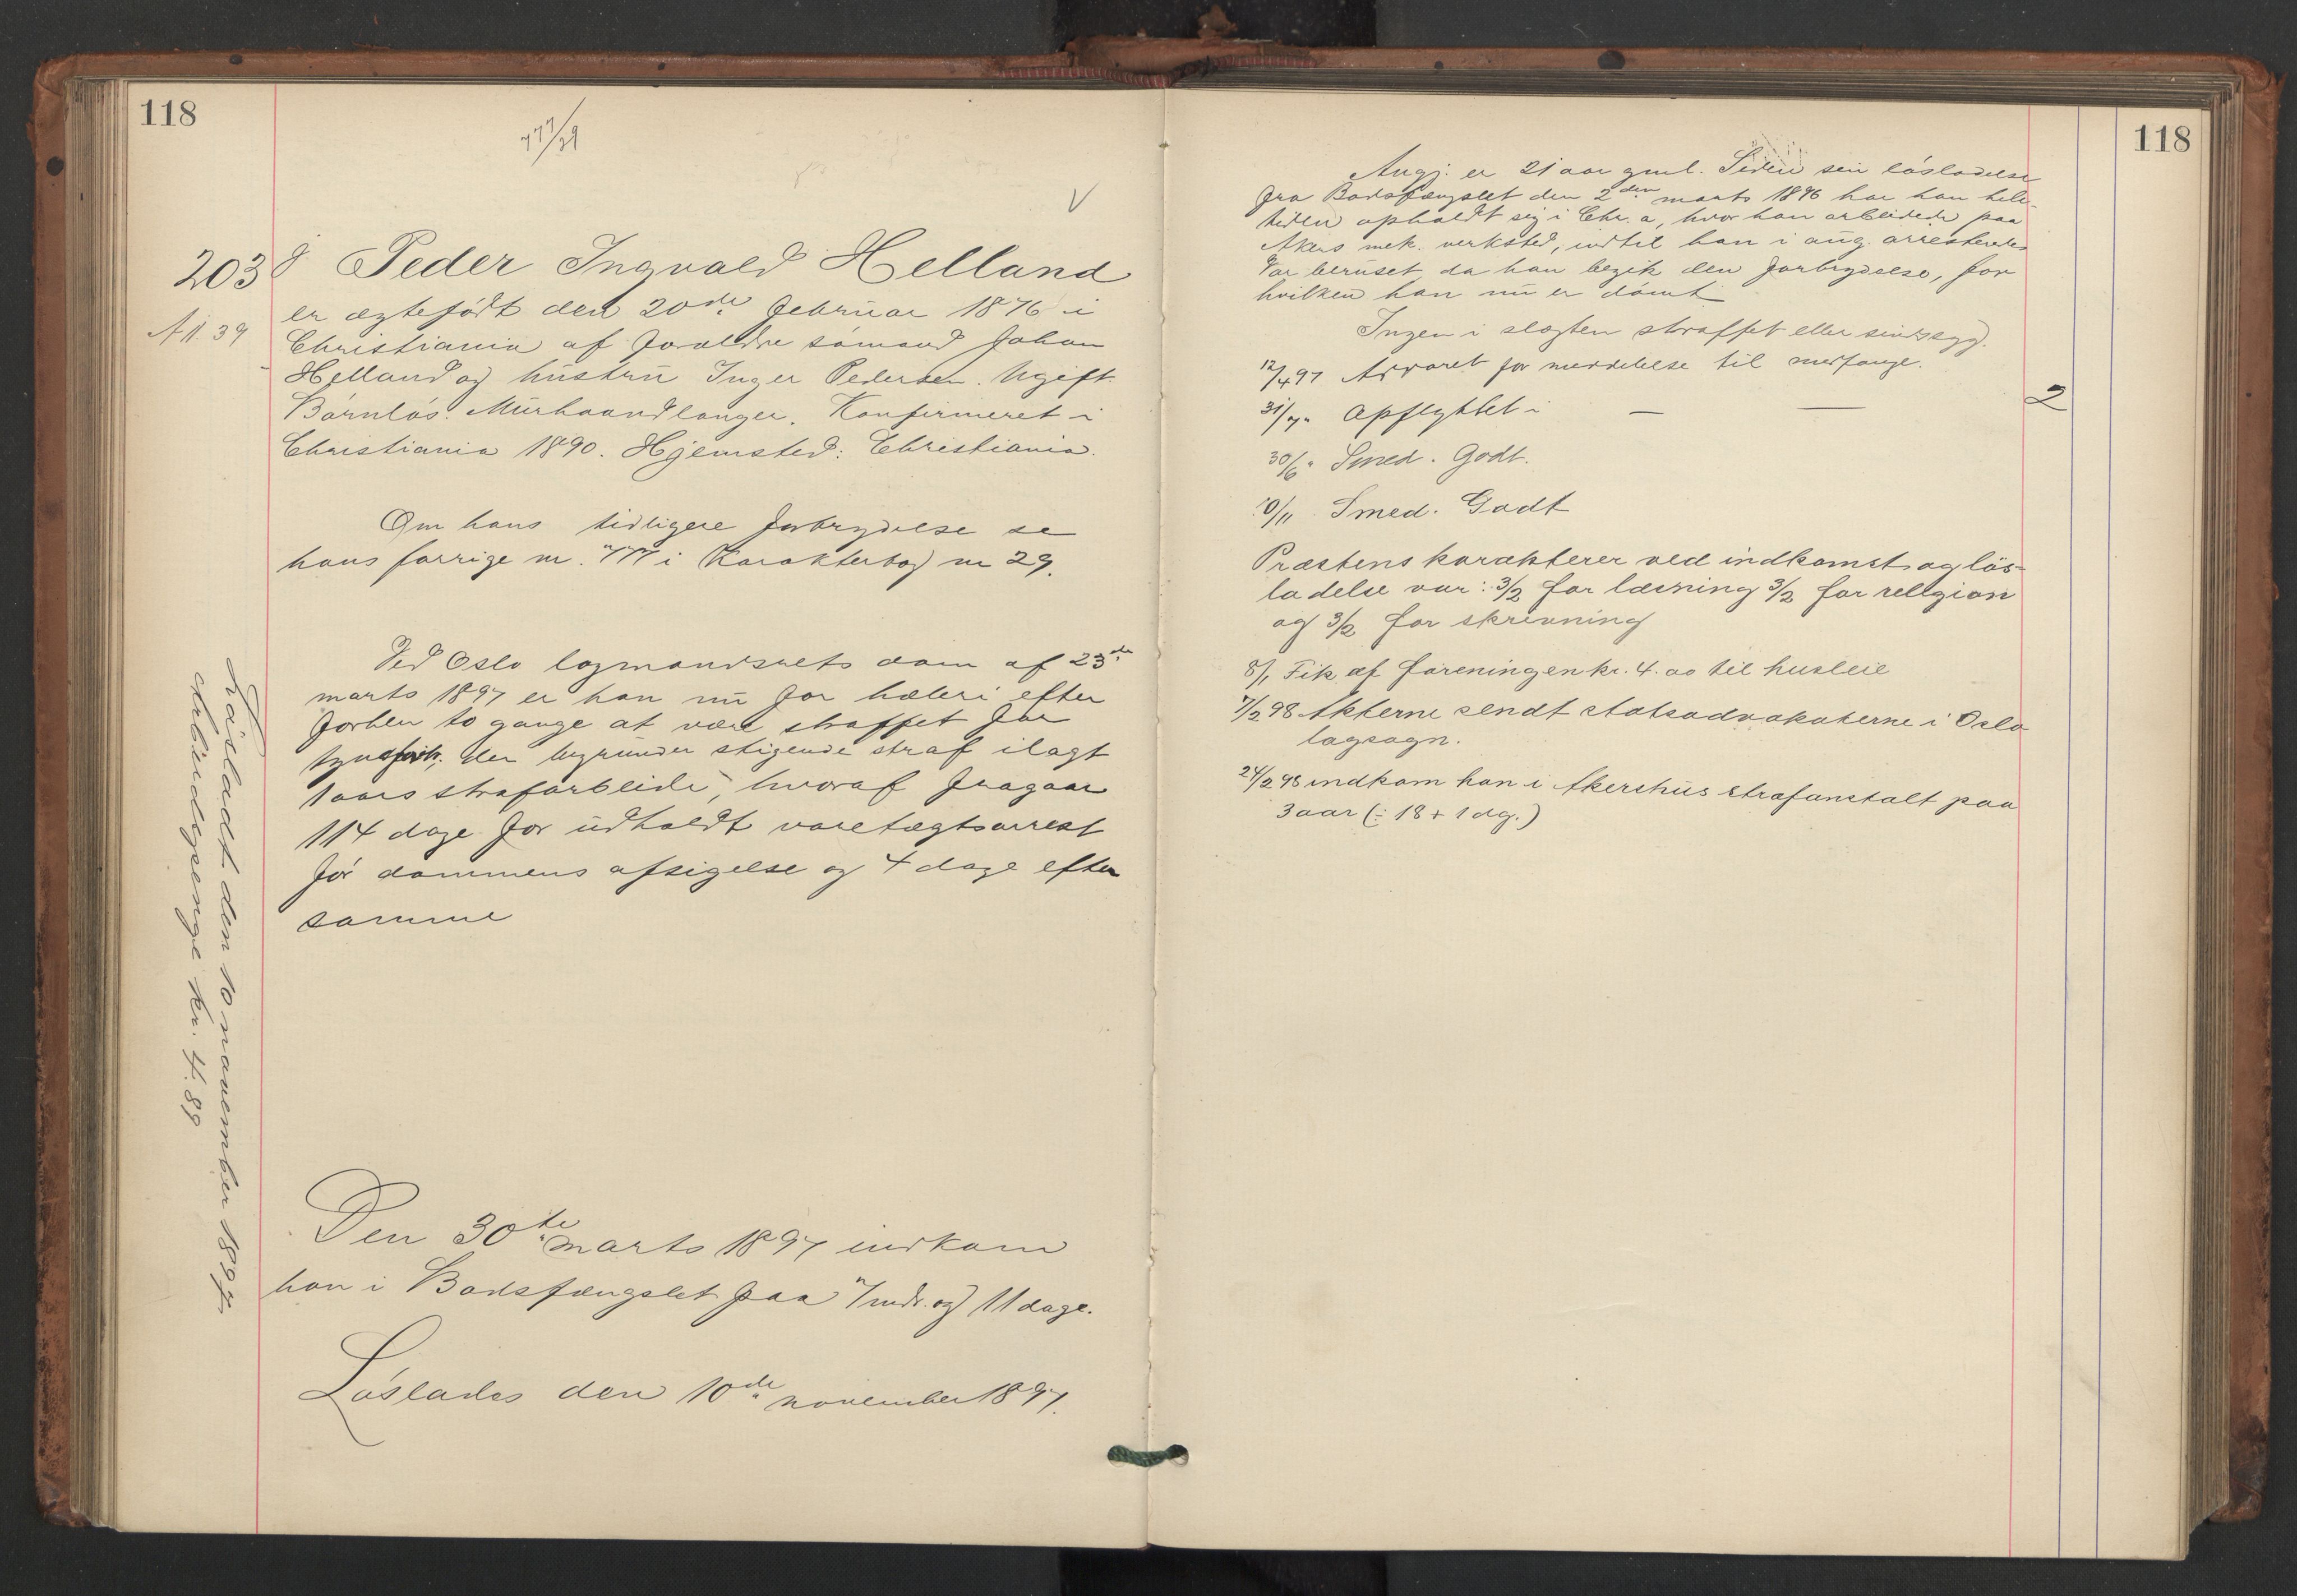 118
777/29
V
203 Peder Ingvald Helland
A 11. 39
er ægtefødt den 20de februar 1876 i
Christiania af foreldre sømand Johan
Helland og hustru Inger Pedersen. Ugift.
Barnløs. Murhaandlanger. Konfirmeret i
Christiania 1890. Hjemsted: Christiania.
Om hans tidligere forbrydelse se
hans forrige nr. 777 i Karakterbog nr 29.
Ved Oslo lagmandsrets dom af 23de
marts 1897 er han nu for hæleri efter
forhen to gange at være straffet for
tyvsforb. der begrunder stigende straf ilagt
1 aars strafarbeide, hvoraf fragaar
114 dage for udholdt varetægtsarrest
før dommens afsigelse og 4 dage efter
samme
Den 30te marts 1897 indkom
han i Bodsfængslet paa 7 mdr. og 11 dage.
Løslades den 10de november 1897.
Løsladt den 10 november 1897.
Arbeidspenge kr. 4.89
118
Angj. er 21 aar gml. Siden sin løsladelse
fra Bodsfængslet den 2den marts 1896 har han hele
tiden opholdt sig i Chr.a, hvor han arbeidede paa
Akers mek. verksted, indtil han i aug. arresteredes
Var beruset, da han begik den forbrydelse, for
hvilken han nu er dømt
Ingen i slægten straffet eller sindssyg.
12/4 97 Advaret for meddelelse til medfange.
31/7 " Opflyttet i — — 2
30/6 " Smed. Godt.
10/11 Smed. Godt
Præstens karakterer ved indkomst og løs-
ladelse var: 3/2 for læsning 3/2 for religion
og 3/2 for skrivning
8/1 Fik af foreningen kr. 4.00 til husleie
7/2 98 Akterne sendt statsadvokaterne i Oslo
lagsogn.
24/2 98 indkom han i Akershus strafanstalt paa
3 aar (÷ 18 + 1 dg.)